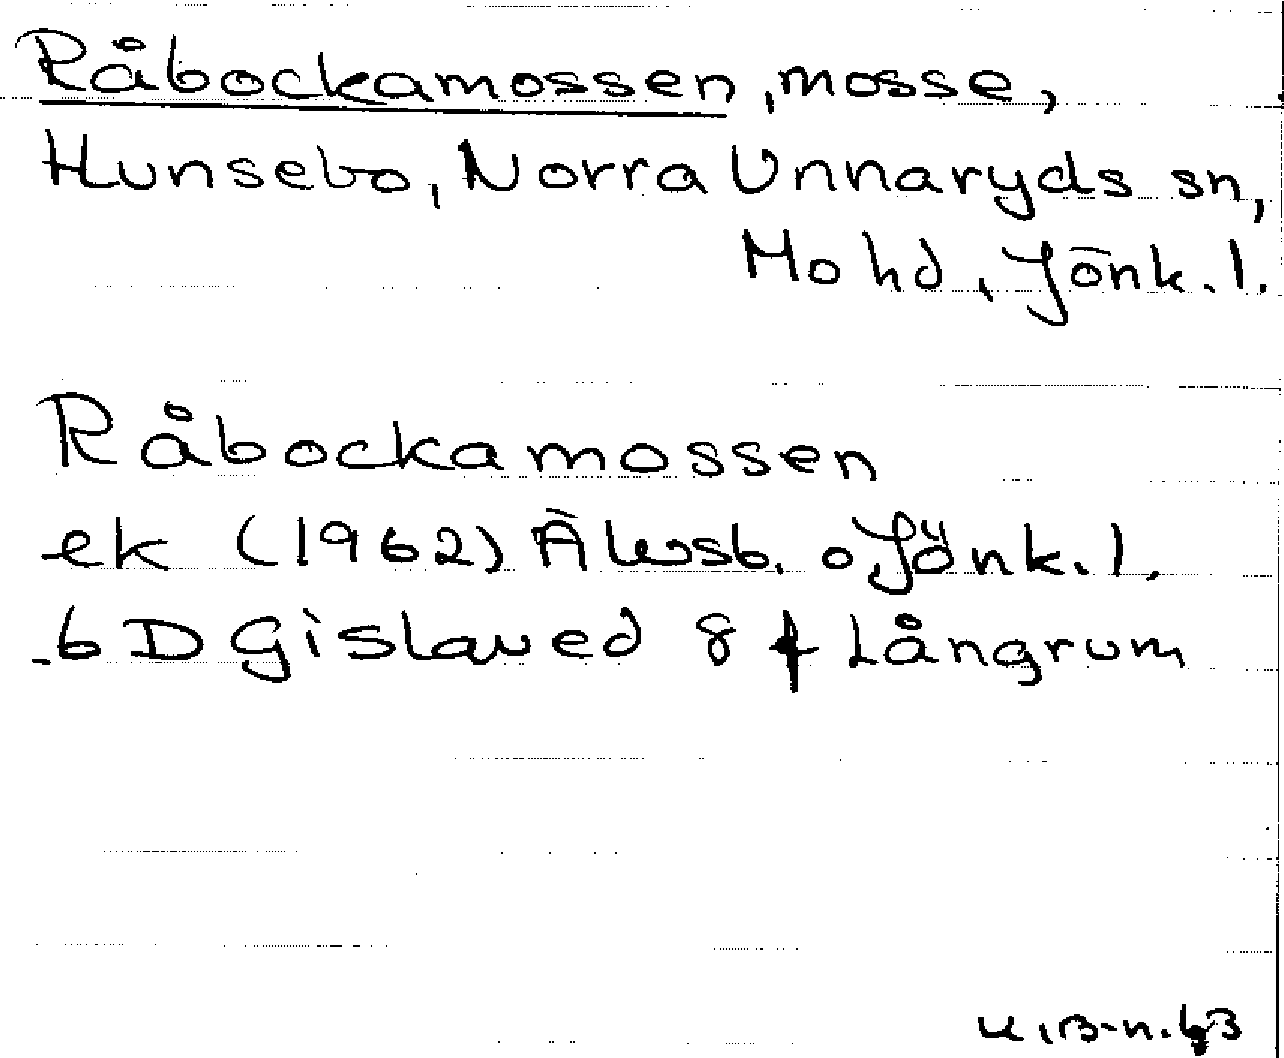 Råbockamossen, mosse,
Hunsebo, Norra Unnaryds sn,
Mo hd, Jönk. l.
Råbockamossen
ek (1962) Älvsb. o Jönk. l.
6D Gislaved 8f Långrum